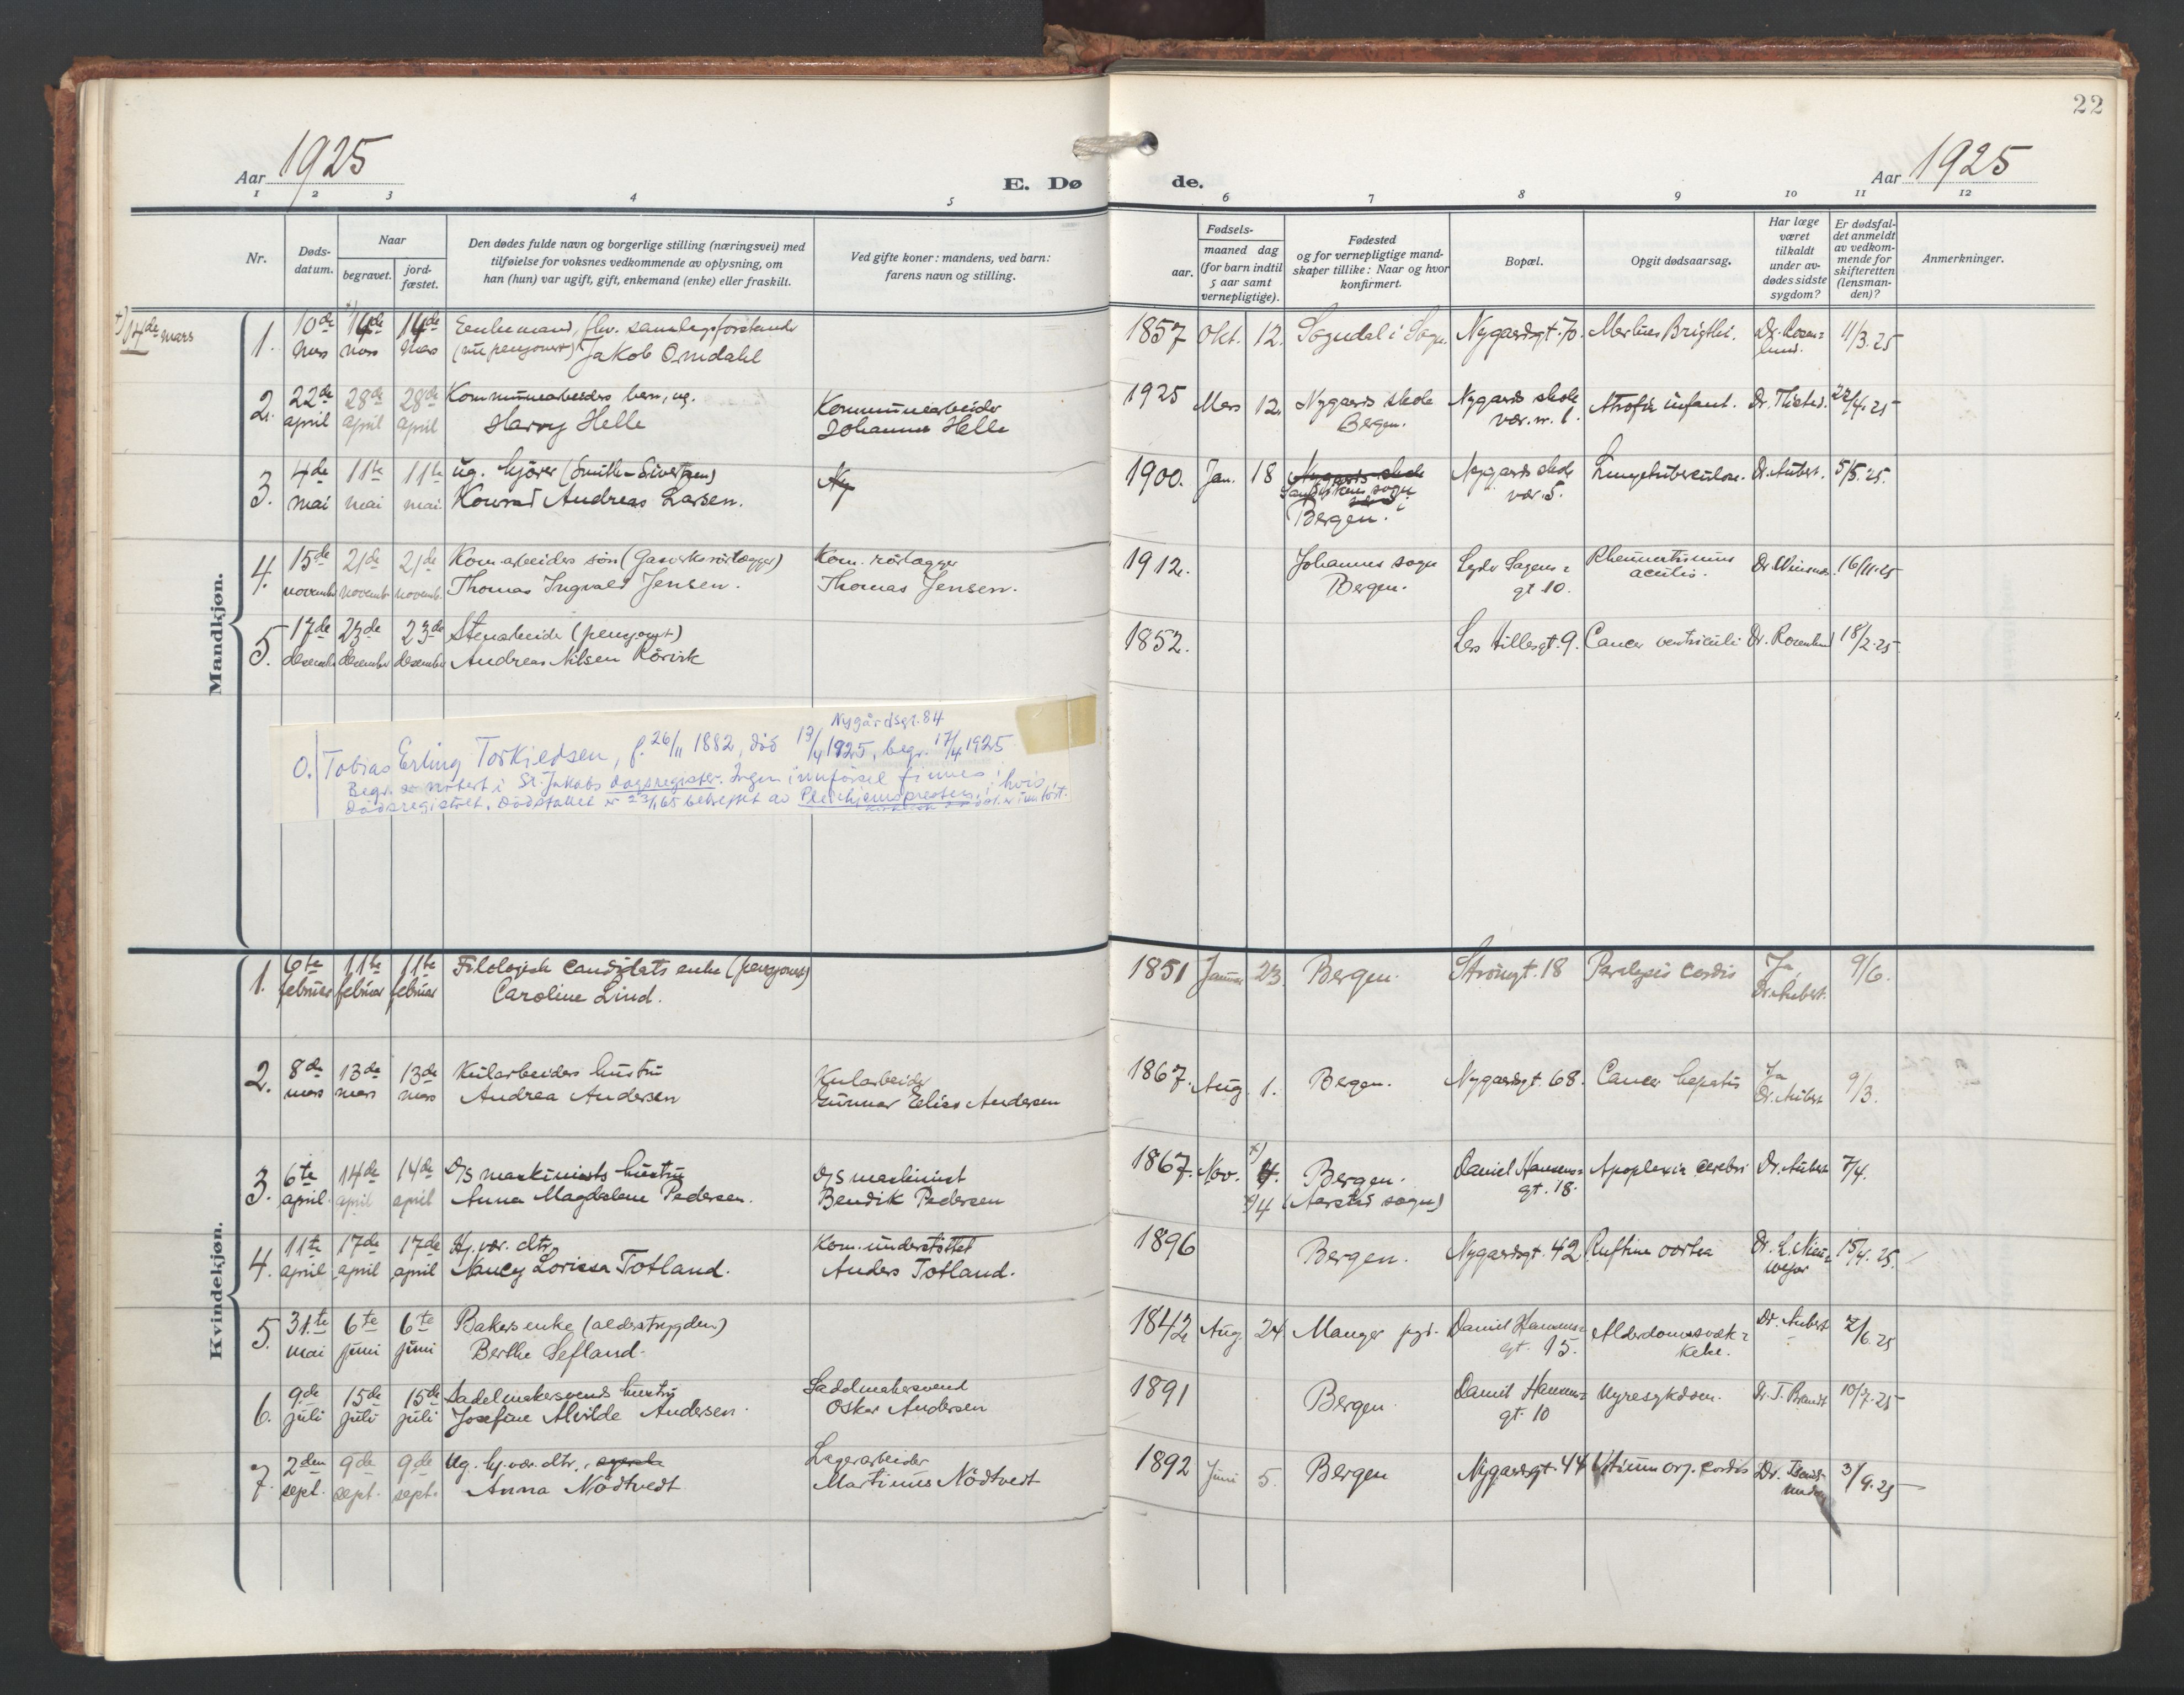 22
Aar 1925
E. Dø de.
Aar 1925
1 2 3 4 5 6 7 8 9 10 11 12
Nr.
Døds-
datum.
Naar
begravet.
jord-
fæstet.
Den dødes fulde navn og borgerlige stilling (næringsvei) med
tilføielse for voksnes vedkommende av oplysning, om
han (hun) var ugift, gift, enkemand (enke) eller fraskilt.
Ved gifte koner: mandens, ved barn:
farens navn og stilling.
Fødsels-
aar.
maaned dag
(for barn indtil
5 aar samt
vernepligtige).
Fødested
og for vernepligtige mand-
skaper tillike: Naar og hvor
konfirmert.
Bopæl.
Opgit dødsaarsag.
Har læge
været
tilkaldt
under av-
dødes sidste
sygdom?
Er dødsfal-
det anmeldt
av vedkom-
mende for
skifteretten
(lensman-
den)?
Anmerkninger.
Mandkjøn.
+) 14de mars
1. 10de 14de 14de Enkemand, fhv. samlagsforstander 1857 Okt. 12. Sogndal i Sogn Nygaardsgt. 70. Morbus Brigthi. 11/3.25
mars mars mars (nu pensjonert) Jakob Omdahl
2. 22de 28de 28de Kommunearbeiders barn, ug. Kommunearbeider 1925 Mars 12. Nygaards skole Nygaards skole Atrofia infant. 22/4.25
april april april Harry Helle Johannes Helle Bergen. vær. nr. 1.
3. 4de 11te 11te ug. kjører (Smith-Sivertsen) Ny 1900. Jan. 18 Nygaards skole Nygaards skole Lungetuberculose. Dr. Aubert. 5/5.25.
mai mai mai. Konrad Andreas Larsen. Sandvikens sogn Bergen. vær. 5.
4. 15de 21de 21de Kom. arbeiders søn (Gasverksrørlægger) Kom. rørlægger 1912. Johannes sogn Lyder Sagens- Rheumatismus 16/11.25
november novemb. novemb. Thomas Ingvald Jensen. Thomas Jensen. Bergen. gt 10. acutis.
5. 17de 23de 23de Stenarbeider (pensjonert) 1852. Lars Hillesgt. 9. Cancer ventriculi 18/2.25
desember desember desember Andreas Nilsen Rörvik
Nygårdsgt. 84
O. Tobias Erling Torkildsen, f. 26/11 1882, död 13/4 1925, begr. 17/4 1925
Begr. notert i St. Jakobs dagsregister. Ingen innförsel finnes i
Dödsregistret. Dödsfallet er 23/1 65 bekreftet av Pleiehjemspresten, i hvis
kirkebok död. er innført.
Kvindekjøn.
1. 6te 11te 11te Filologisk candidats enke (pensjonert) 1851 Januar 23. Bergen. Strömgt. 18 Paralysis cordis Ja, 9/6.
februar februar februar Caroline Lind. Dr. Aubert.
2. 8de 13de 13de Kularbeiders hustru Kularbeider 1867. Aug. 1. Bergen. Nygaardsgt. 68. Cancer hepatis Ja 9/3.
mars mars mars Andrea Andersen Gunnar Elias Andersen Dr. Aubert
3. 6te 14de 14de D/S maskinists hustru D/S maskinist 1867. Nov. 4. Bergen. Daniel Hansens- Apoplexia cerebri Dr. Aubert 7/4.
april. april april Anna Magdalene Pedersen. Bendik Pedersen 4 (Aarstad sogn) gt. 18.
4. 11te 17de 17de Hj. vær. dtr. Kom. understøttet 1896 Bergen. Nygaardsgt. 42 Ruftina aorta 15/4.25.
april april april Nancy Lorissa Totland. Anders Totland.
5. 31.te 6te 6te Bakers enke (alderstrygden) 1842 Aug. 24 Manger pgd. Daniel Hansens- Alderdomssvæk- Dr. Aubert 2/6.25
mai juni juni Berthe Sefland. gt. 15. kelse.
6. 9de 15de 15de Sadelmakersvends hustru Saddmakersvend 1891 Bergen. Daniel Hansens- Nyresykdom. Dr. T. Brandt 10/7.25
juli juli juli Josefine Alvilde Andersen. Oskar Andersen gt. 10
7. 2den 9de 9de Ug. hj. vær. dtr. Lagerarbeider 1892 Juni 5. Bergen Nygaardsgt. 44 Vitium org. cordis 3/9.25
sept. sept. sept. Anna Nödtvedt Martinus Nödtvedt